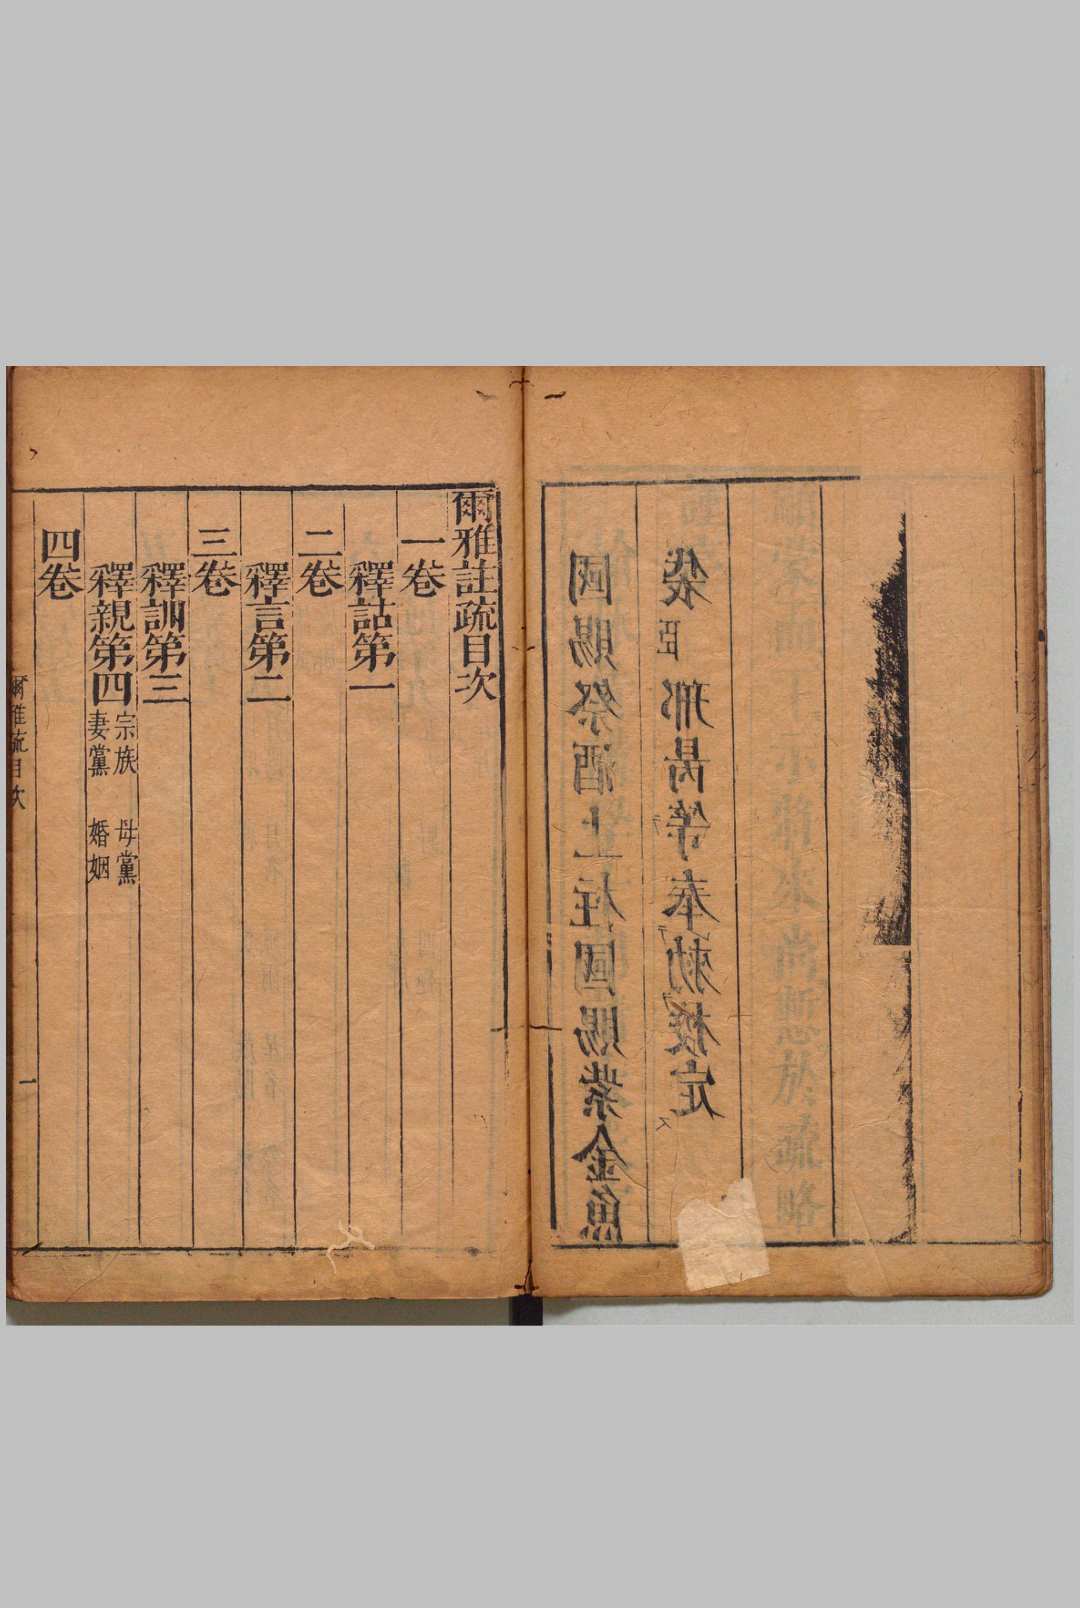 國賜祭酒上柱國賜紫金魚
袋臣邢昺等奉勅校定
爾雅註疏目次
一卷
釋詁第一
二卷
釋言第二
三卷
釋訓第三
釋親第四
宗族 母黨
妻黨 婚姻
四卷
爾雅疏目次
一